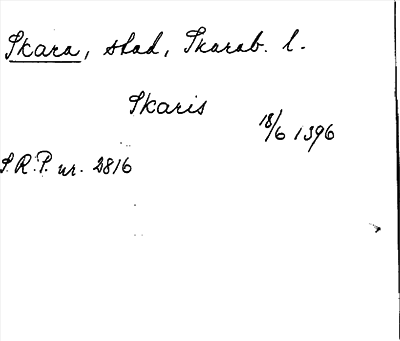 Skara, stad, Skarab. l.
Skaris
18/6 1396
S.R.P. nr. 2816